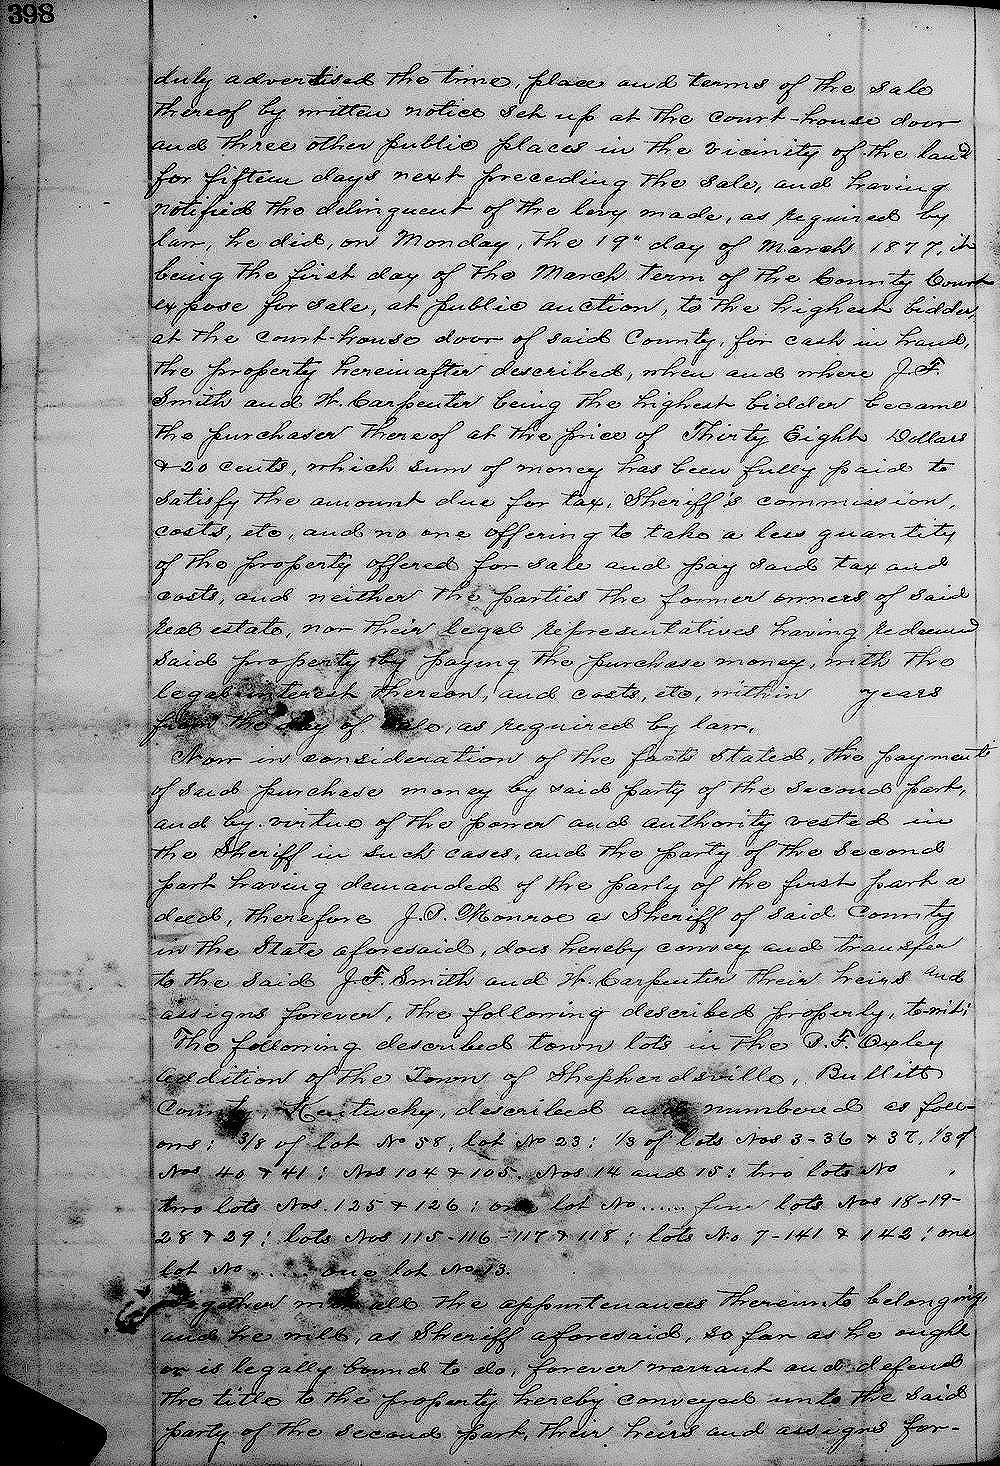 398
duly advertised the time, place and terms of the sale
thereof by written notice set up at the court-house door
and three other public places in the vicinity of the land
for fifteen days next preceding the sale, and having
notified the delinquent of the levy made, as required by
law, he did, on Monday, the 19" day of March 1877, it
being the first day of the March term of the County Court
expose for sale, at public auction, to the highest bidder,
at the court-house door of said County, for cash in hand,
the property hereinafter described, when and where J. F.
Smith and W. Carpenter being the highest bidder became
the purchaser thereof at the price of Thirty Eight Dollars
& 20 cents, which sum of money has been fully paid to
satisfy the amount due for tax, Sheriff's commission,
costs, etc, and no one offering to take a less quantity
of the property offered for sale and pay said tax and
costs, and neither the parties the former owners of said
real estate, nor their legal representatives having redeemed
said property by paying the purchase money, with the
legal interest thereon, and costs, etc, within years
from the day of sale, as required by law.
Now in consideration of the facts stated, the payment
of said purchase money by said party of the second part,
and by virtue of the power and authority vested in
the Sheriff in such cases, and the party of the second
part having demanded of the party of the first part a
deed, therefore J. P. Monroe a Sheriff of said County
in the State aforesaid, does hereby convey and transfer
to the said J. F. Smith and W. Carpenter their heirs and
assigns forever, the following described property, to-wit:
The following described town lots in the P. F. Oxley
Addition of the Town of Shepherdsville, Bullitt
County, Kentucky, described and numbered as foll-
ows: 3/8 of lot No 58, lot No 23: 1/3 of lots Nos 3-36 & 37, 1/3 of
Nos 40 & 41: Nos 104 & 105. Nos 14 and 15: two lots No ,
two lots Nos. 125 & 126: one lot No...... four lots Nos 18-19-
28 & 29: lots Nos 115-116-117 & 118; lots No 7-141 & 142: one
lot No ...... one lot No 13.
Together with all the appurtenances thereunto belonging,
and he will, as Sheriff aforesaid, so far as he ought
or is legally bound to do, forever warrant and defend
the title to the property hereby conveyed unto the said
party of the second part, their heirs and assigns for-